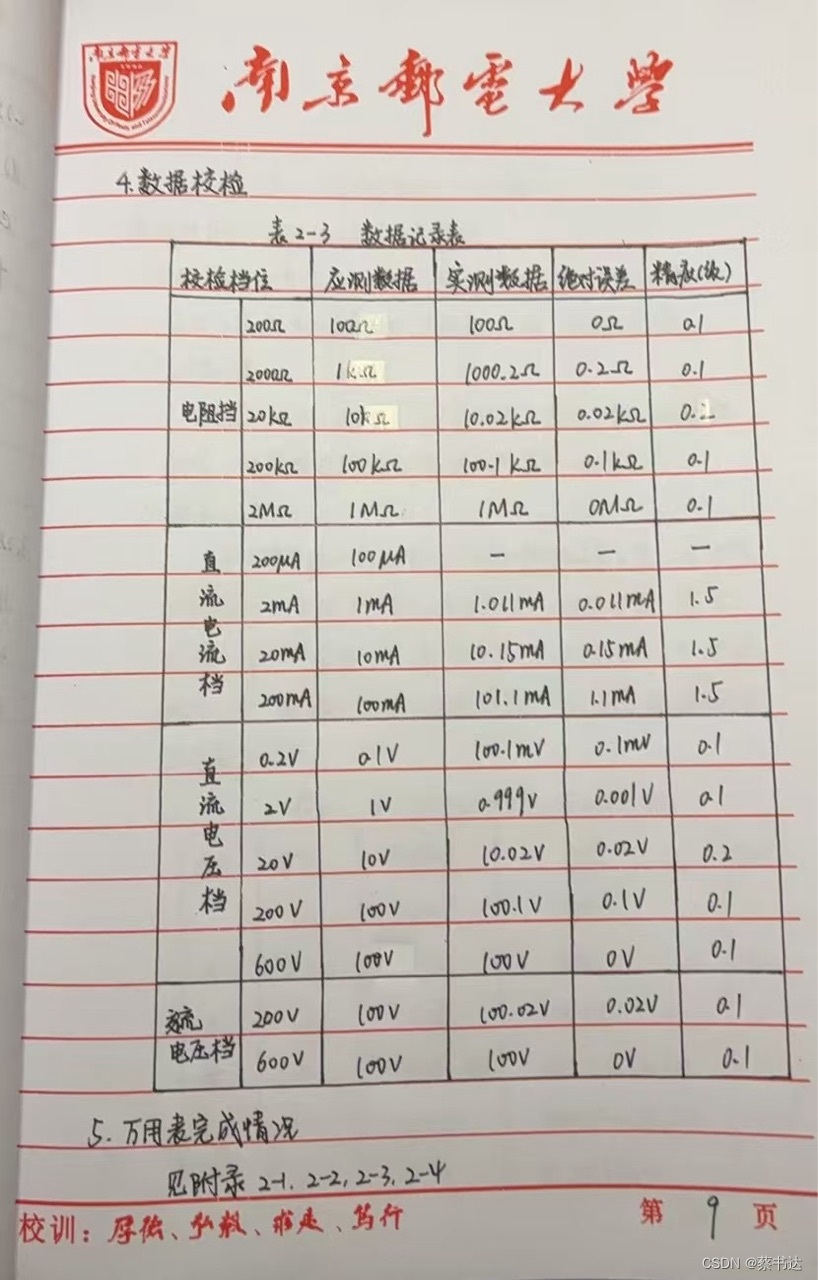 南京邮电大学
南京郵電大學
4.数据校检
表2-3 数据记录表
校检档位 应测数据 实测数据 绝对误差 精度(级)
电阻挡
200Ω 100Ω 100Ω 0Ω 0.1
2000Ω 1kΩ 1000.2Ω 0.2Ω 0.1
20kΩ 10kΩ 10.02kΩ 0.02kΩ 0.2
200kΩ 100kΩ 100.1kΩ 0.1kΩ 0.1
2MΩ 1MΩ 1MΩ 0MΩ 0.1
直流电流档
200μA 100μA — — —
2mA 1mA 1.011mA 0.011mA 1.5
20mA 10mA 10.15mA 0.15mA 1.5
200mA 100mA 101.1mA 1.1mA 1.5
直流电压档
0.2V 0.1V 100.1mV 0.1mV 0.1
2V 1V 0.999V 0.001V 0.1
20V 10V 10.02V 0.02V 0.2
200V 100V 100.1V 0.1V 0.1
600V 100V 100V 0V 0.1
交流电压档
200V 100V 100.02V 0.02V 0.1
600V 100V 100V 0V 0.1
5.万用表完成情况
见附录2-1,2-2,2-3,2-4
校训：厚德、弘毅、求是、笃行
第 9 页
CSDN @蔡书达